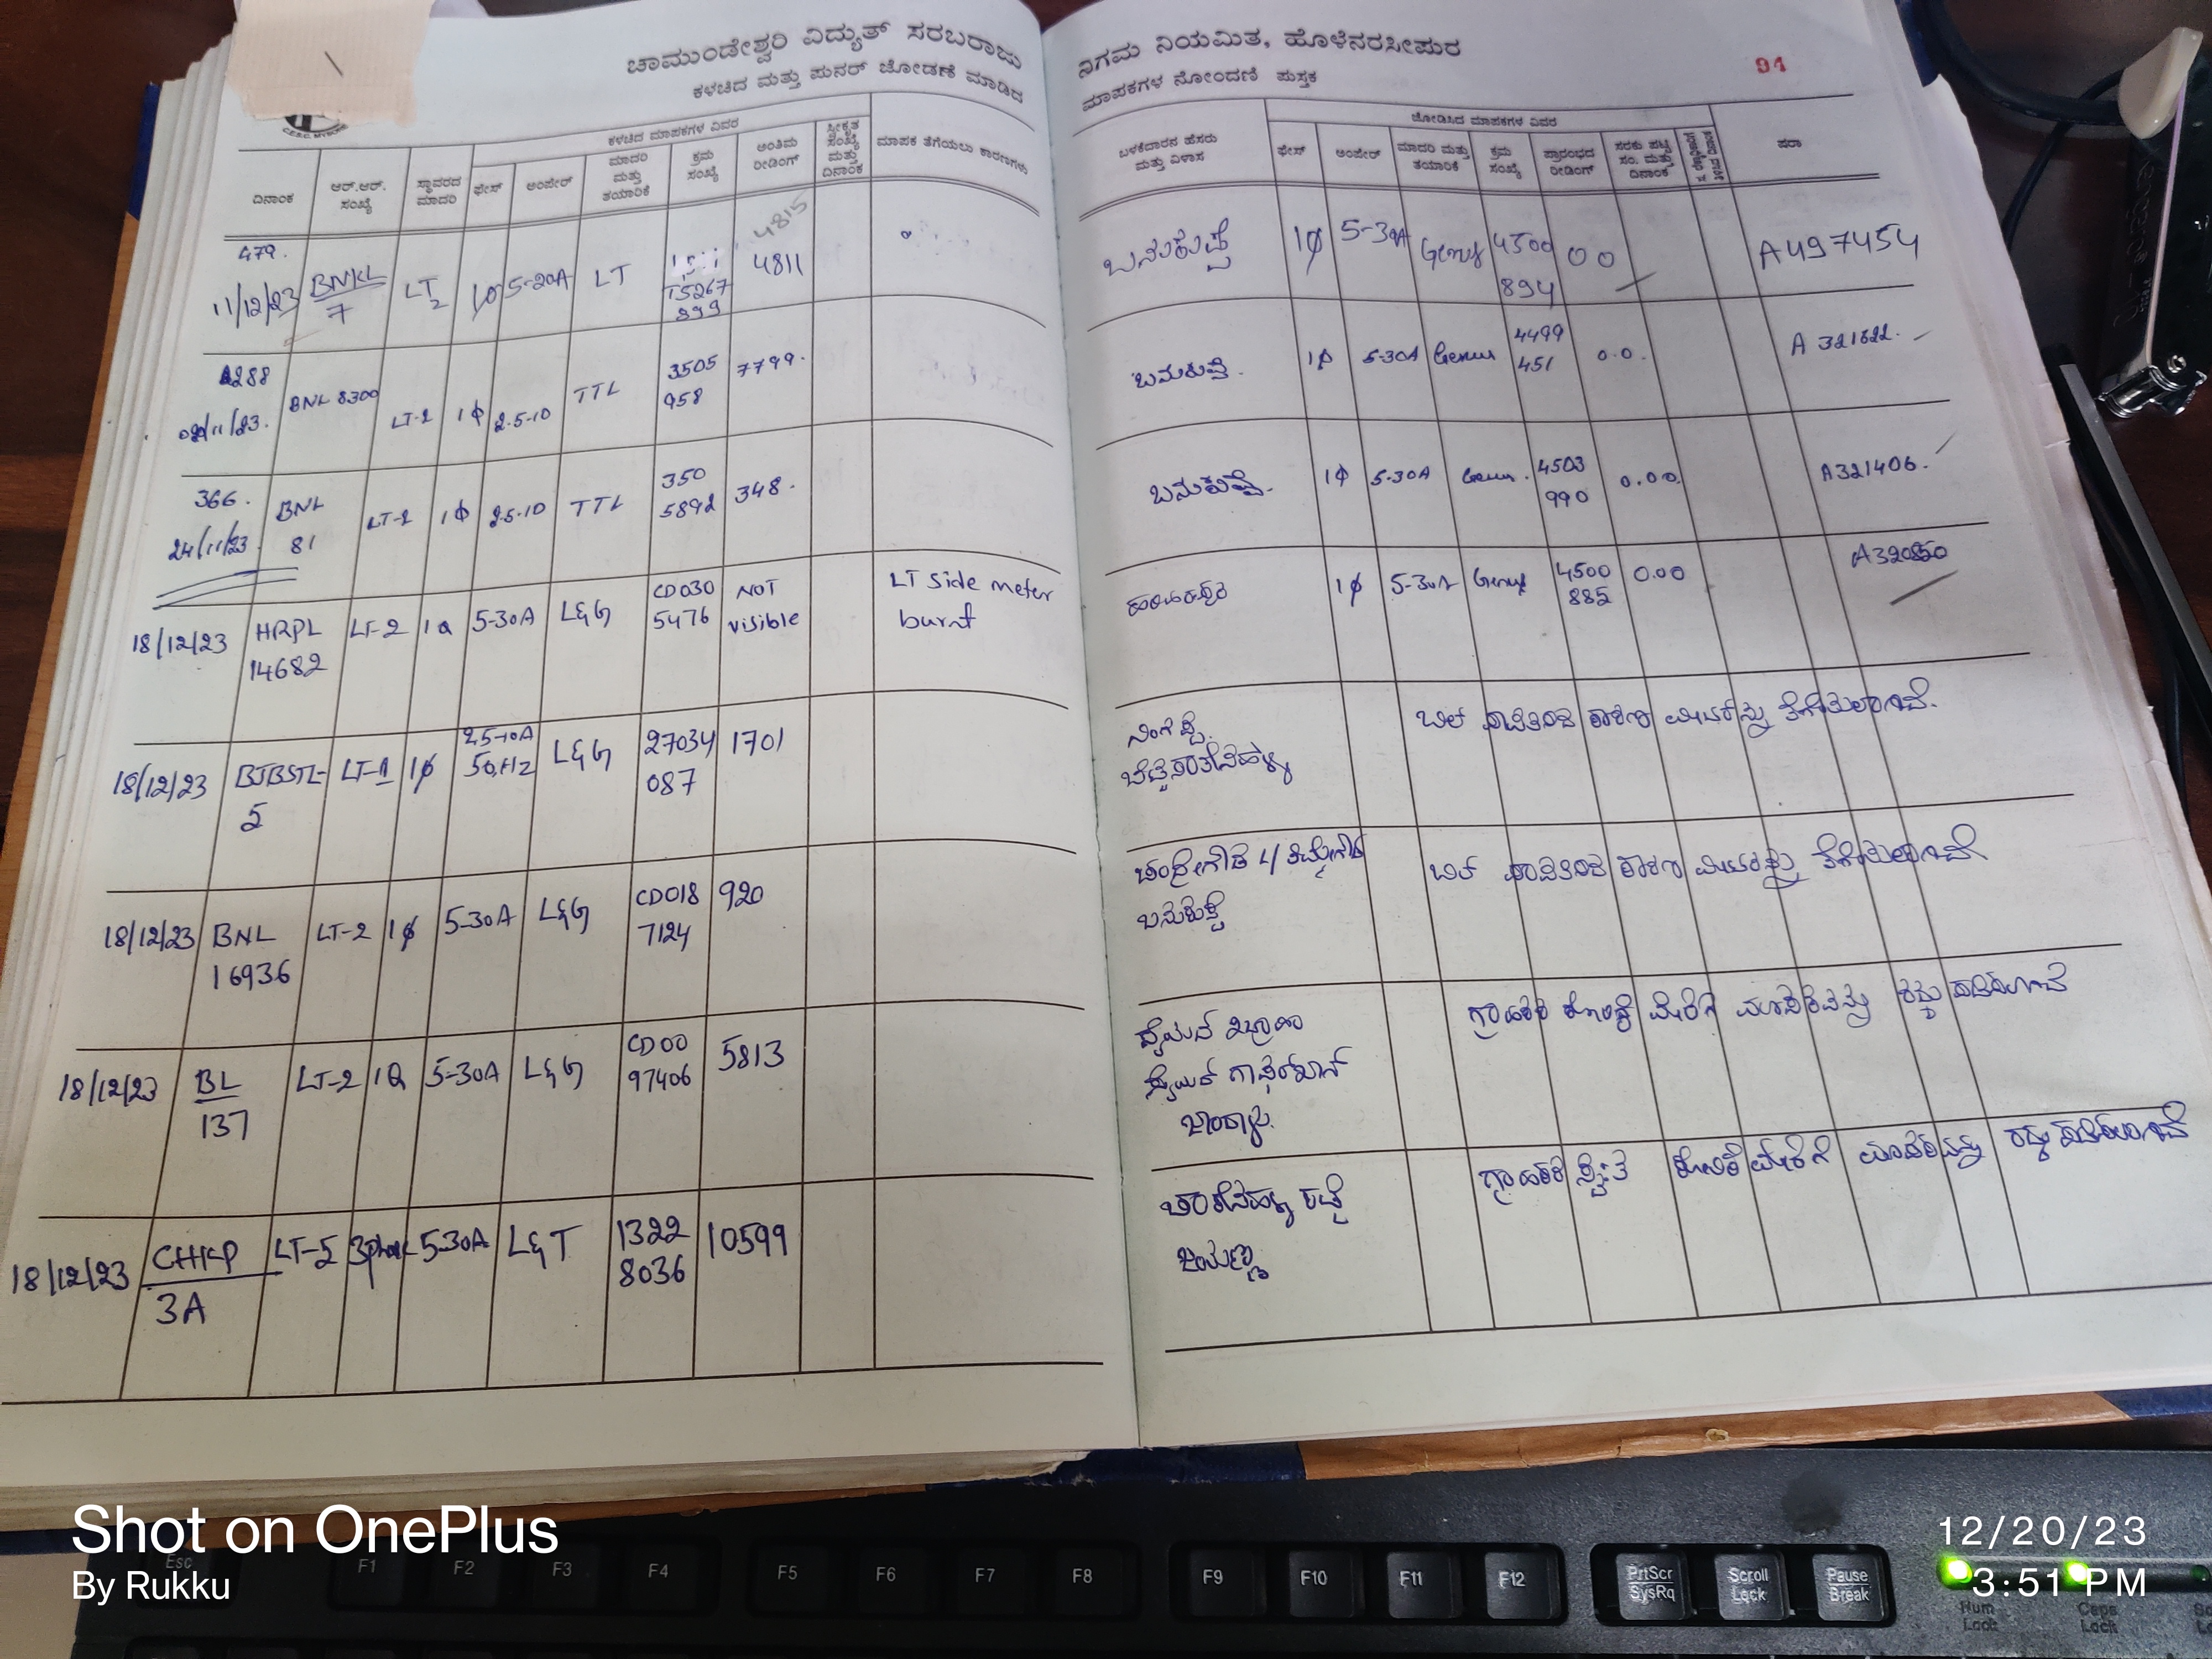 ಚಾಮುಂಡೇಶ್ವರಿ ವಿದ್ಯುತ್ ಸರಬರಾಜು
ಕಳಚಿದ ಮತ್ತು ಪುನರ್ ಜೋಡಣೆ ಮಾಡಿದ
C.E.S.C. MYSORE
ಕಳಚಿದ ಮಾಪಕಗಳ ವಿವರ
ದಿನಾಂಕ ಆರ್.ಆರ್. ಸಂಖ್ಯೆ ಸ್ಥಾವರದ ಮಾದರಿ ಫೇಸ್ ಅಂಪೇರ್ ಮಾದರಿ ಮತ್ತು ತಯಾರಿಕೆ ಕ್ರಮ ಸಂಖ್ಯೆ ಅಂತಿಮ ರೀಡಿಂಗ್ ಸ್ವೀಕೃತ ಸಂಖ್ಯೆ ಮತ್ತು ದಿನಾಂಕ ಮಾಪಕ ತೆಗೆಯಲು ಕಾರಣಗಳು
479. 4815
11/12/23 BNKL LT 1ϕ 5-20A LT 15267 4811
7 2 899
288 BNL 8300 LT-2 1ϕ 2.5-10 TTL 3505 7799.
02/11/23. 958
366. BNL LT-2 1ϕ 2.5-10 TTL 350 348.
24/11/23. 81 5892
18/12/23 HRPL LT-2 1ϕ 5-30A L&G CD030 NOT LT side meter
14682 5476 visible burnt
18/12/23 BJBSTL- LT-1 1ϕ 2.5-10A L&G 27034 1701
5 50Hz 087
18/12/23 BNL LT-2 1ϕ 5-30A L&G CD018 920
16936 7124
18/12/23 BL LT-2 1ϕ 5-30A L&G CD00 5813
137 97406
18/12/23 CHKP LT-5 3phase 5-30A L&T 1322 10599
3A 8036
ನಿಗಮ ನಿಯಮಿತ, ಹೊಳೆನರಸೀಪುರ
94
ಮಾಪಕಗಳ ನೋಂದಣಿ ಪುಸ್ತಕ
ಜೋಡಿಸಿದ ಮಾಪಕಗಳ ವಿವರ
ಬಳಕೆದಾರನ ಹೆಸರು ಮತ್ತು ವಿಳಾಸ ಫೇಸ್ ಅಂಪೇರ್ ಮಾದರಿ ಮತ್ತು ತಯಾರಿಕೆ ಕ್ರಮ ಸಂಖ್ಯೆ ಪ್ರಾರಂಭದ ರೀಡಿಂಗ್ ಸರಕು ಪಟ್ಟಿ ಸಂ. ಮತ್ತು ದಿನಾಂಕ ಷರಾ
ಬನುಕುಪ್ಪೆ 1ϕ 5-30A Genus 4500 00 A497454
894
ಬನುಕುಪ್ಪೆ. 1ϕ 5-30A Genus 4499 0.0. A 321622.
451
ಬನುಕುಪ್ಪೆ. 1ϕ 5-30A Genus. 4503 0.00. A321406.
990
1ϕ 5-30A Genus 4500 0.00
885
ನಿಂಗಪ್ಪ. ಬಿಲ್ ಪಾವತಿಸದ ಕಾರಣ ಮೀಟರನ್ನು ತೆಗೆಯಲಾಗಿದೆ.
ಬಿಲ್ ಪಾವತಿಸದ ಕಾರಣ ಮೀಟರನ್ನು ತೆಗೆಯಲಾಗಿದೆ
ಬನುಕುಪ್ಪೆ
ಗ್ರಾಹಕರ ಕೋರಿಕೆ ಮೇರೆಗೆ ಮಾಪಕವನ್ನು ರದ್ದು ಪಡಿಸಲಾಗಿದೆ
ಗ್ರಾಹಕರ ಸ್ವಂತ ಕೋರಿಕೆ ಮೇರೆಗೆ ಮಾಪಕವನ್ನು ರದ್ದು ಪಡಿಸಲಾಗಿದೆ
ಜಯಣ್ಣ
Shot on OnePlus
By Rukku
12/20/23
3:51 PM
Esc F1 F2 F3 F4 F5 F6 F7 F8 F9 F10 F11 F12 PrtScr SysRq Scroll Lock Pause Break
Num Lock Caps Lock